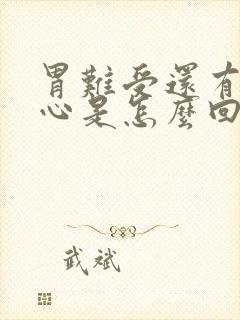 胃難受還有
心是怎麼回
武斌